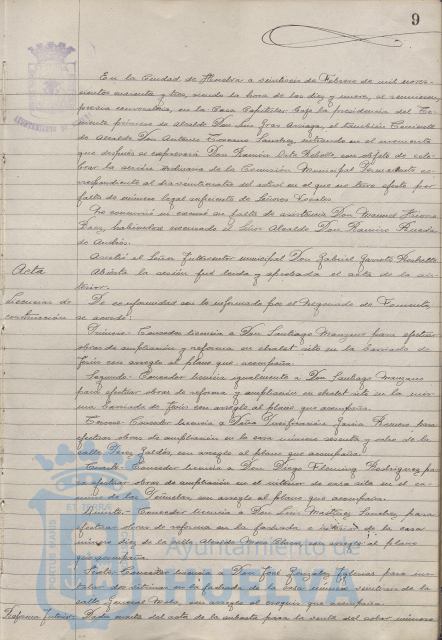 9
En la Ciudad de Huelva a veintiseis de Febrero de mil nove-
cientos cuarenta y tres, siendo la hora de las diez y nueve, se reunieron
previa convocatoria, en la Casa Capitular bajo la presidencia del Te-
niente primero de Alcalde Don Luis, el también Teniente
de Alcalde Don Antonio Sanchez, entrando en el momento
que después se expresará Don Ramón Rebollo con objeto de cele-
brar la sesión ordinaria de la Comisión Municipal Permanente co-
rrespondiente al dia veinticuatro del actual en el que no tuvo efecto por
falta de número legal suficiente de Señores Vocales.
No concurrió ni excusó su falta de asistencia Don Manuel
habiéndose excusado el Señor Alcalde Don Ramiro
de Andrés.
Asistió el Señor Interventor municipal Don Gabriel Garrote
Acta
Abierta la sesión fué leida y aprobada el acta de la an-
terior.
Licencias de
De conformidad con lo informado por el Negociado de Fomento,
construcción
se acordó:
Primero. Conceder licencia a Don Santiago Manzano para efectuar
obras de ampliación y reforma en chalet sito en la Barriada de
con arreglo al plano que acompaña.
Segundo. Conceder licencia igualmente a Don Santiago Manzano
para efectuar obras de reforma y ampliación en chalet sito en la mis-
ma Barriada de con arreglo al plano que acompaña.
Tercero. Conceder licencia a Doña Garcia Romero para
efectuar obras de ampliación en la casa número sesenta y ocho de la
calle Perez Galdós, con arreglo al plano que acompaña.
Cuarto. Conceder licencia a Don Diego Fleming Rodriguez pa-
ra efectuar obras de ampliación en el interior de casa sita en el ca-
mino de las con arreglo al plano que acompaña.
Quinto. Conceder licencia a Don Luis Martinez Sanchez para
efectuar obras de reforma en la fachada e interior de la casa
número diez de la calle Alcalde Mora Claros, con arreglo al plano
que acompaña.
Sexto. Conceder licencia a Don José Gonzalez para ins-
talar dos vitrinas en la fachada de la casa número veintitres de la
calle General Mola, con arreglo al croquis que acompaña.
Dada cuenta del acta de la subasta para la venta del solar número
Ayuntamiento de
HUELVA
PORTUS MARIS
ET TERRAE